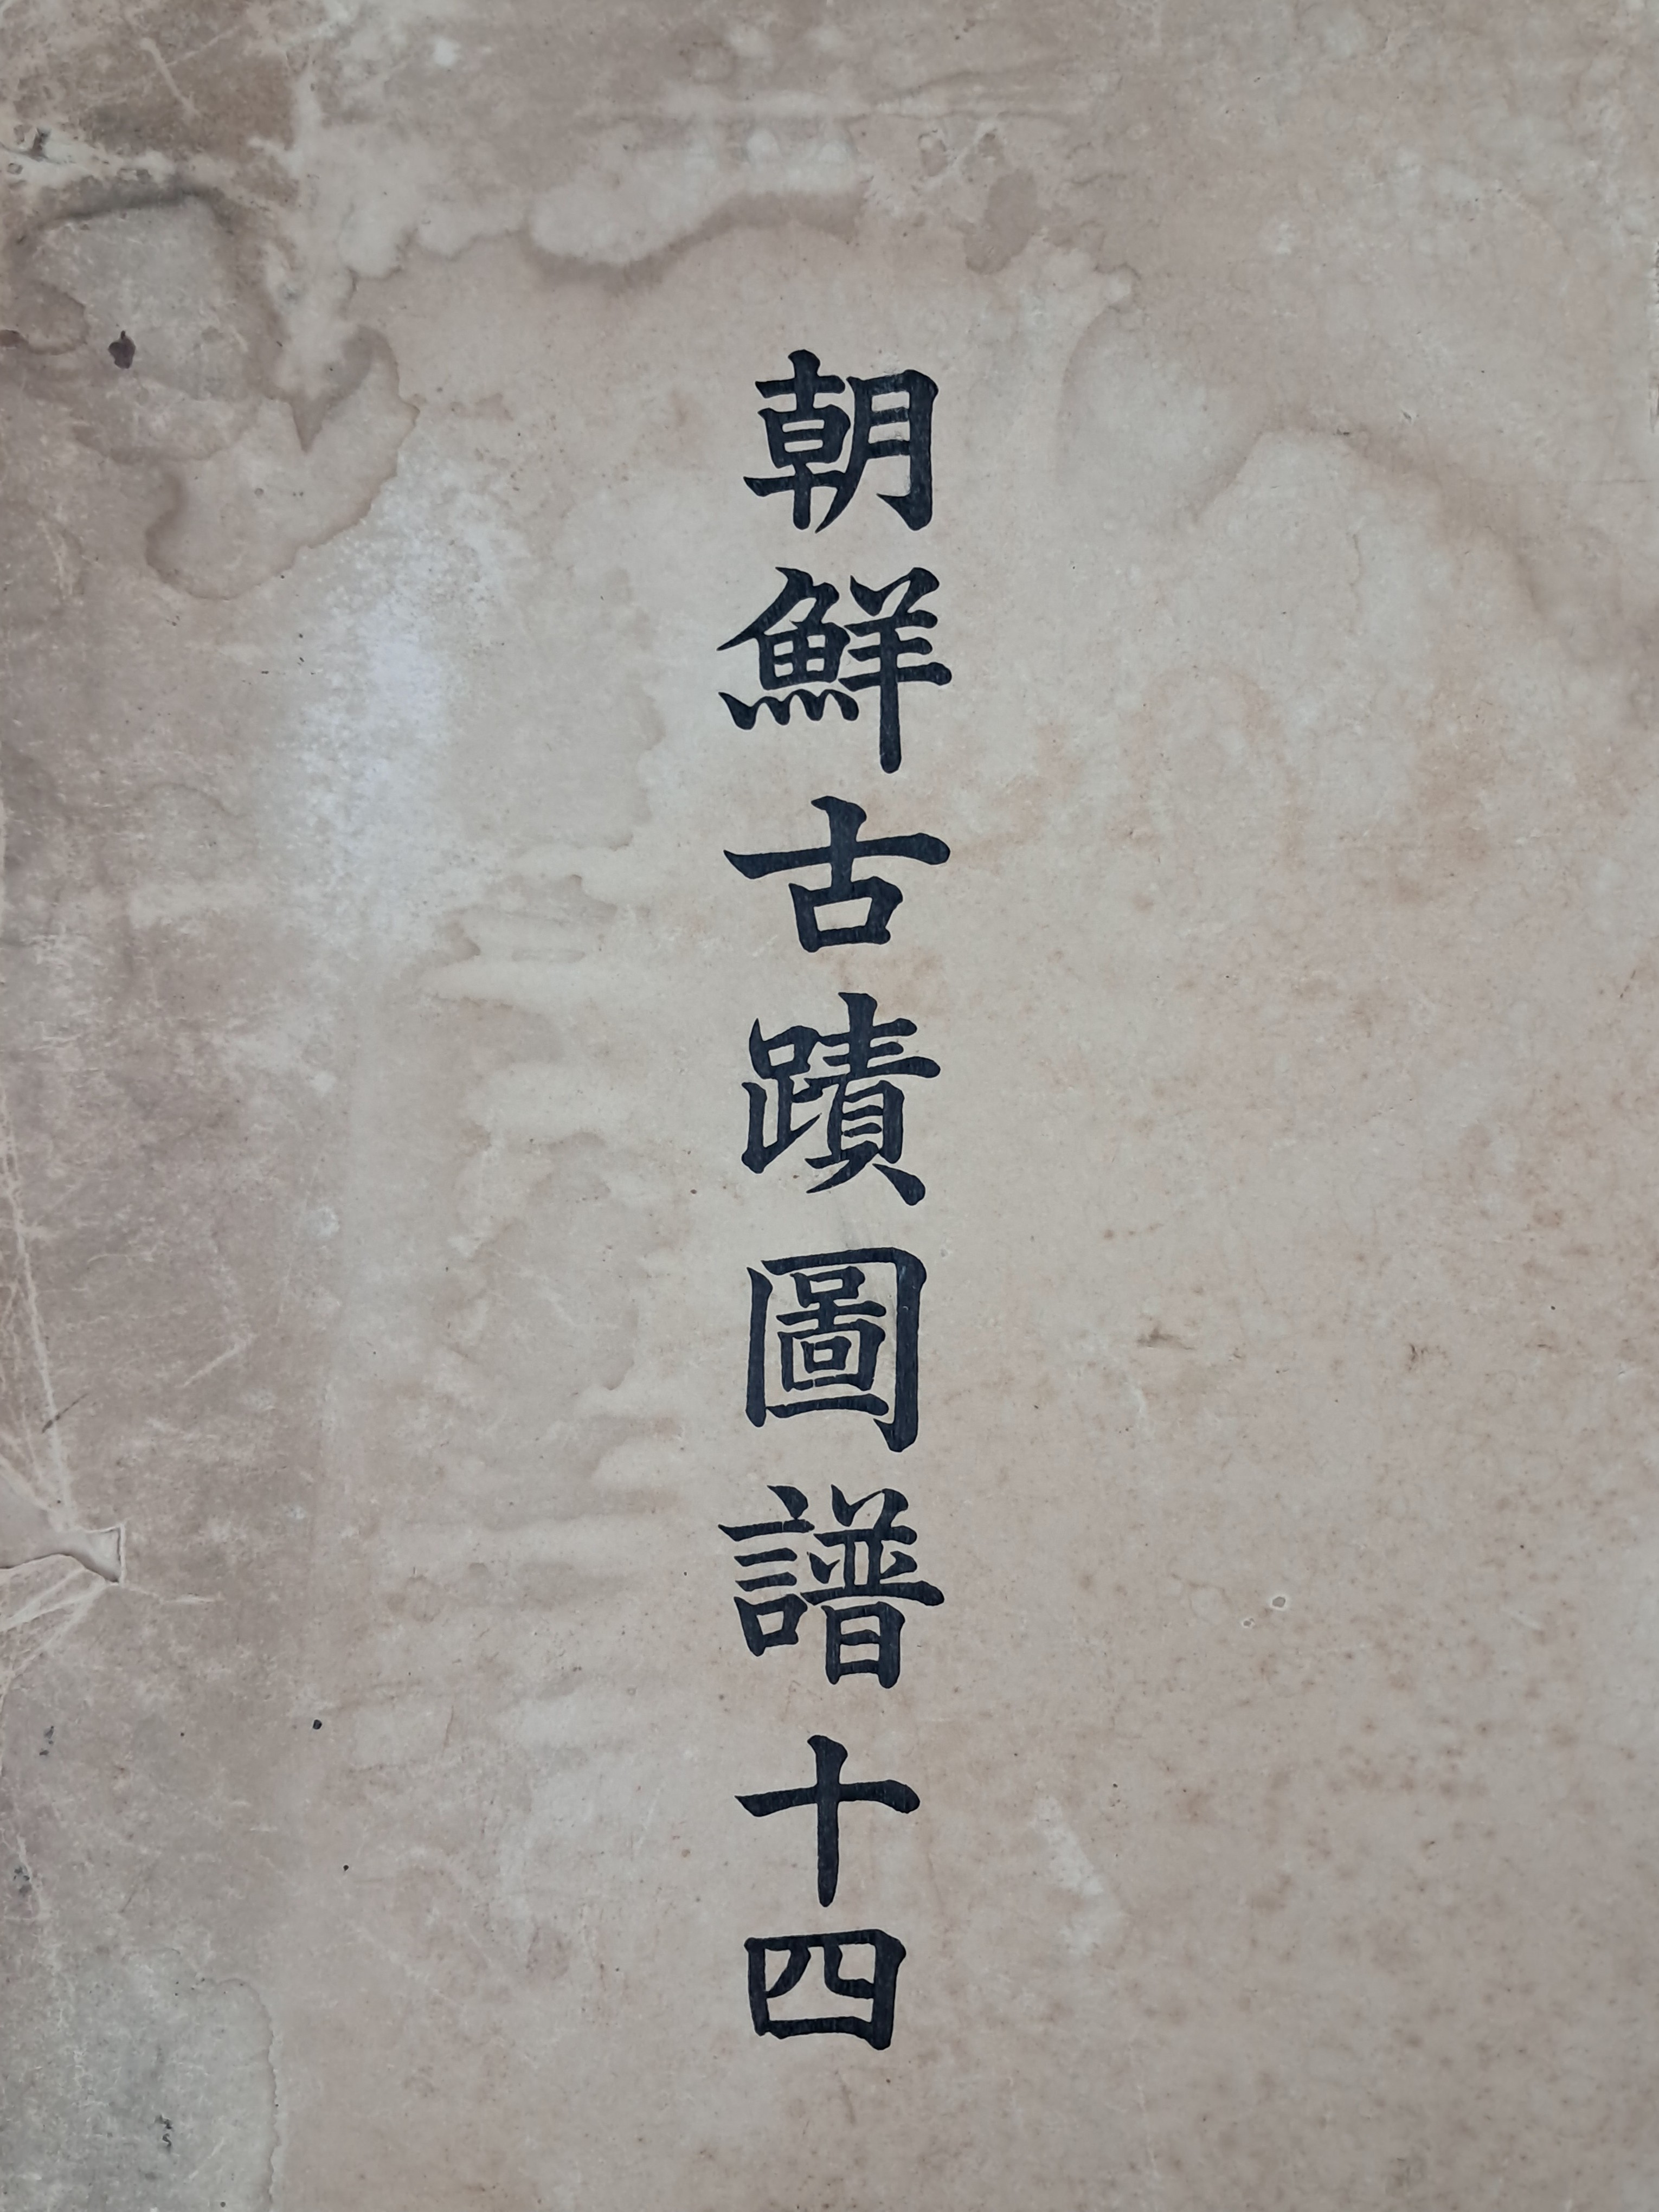 朝鮮古蹟圖譜十四